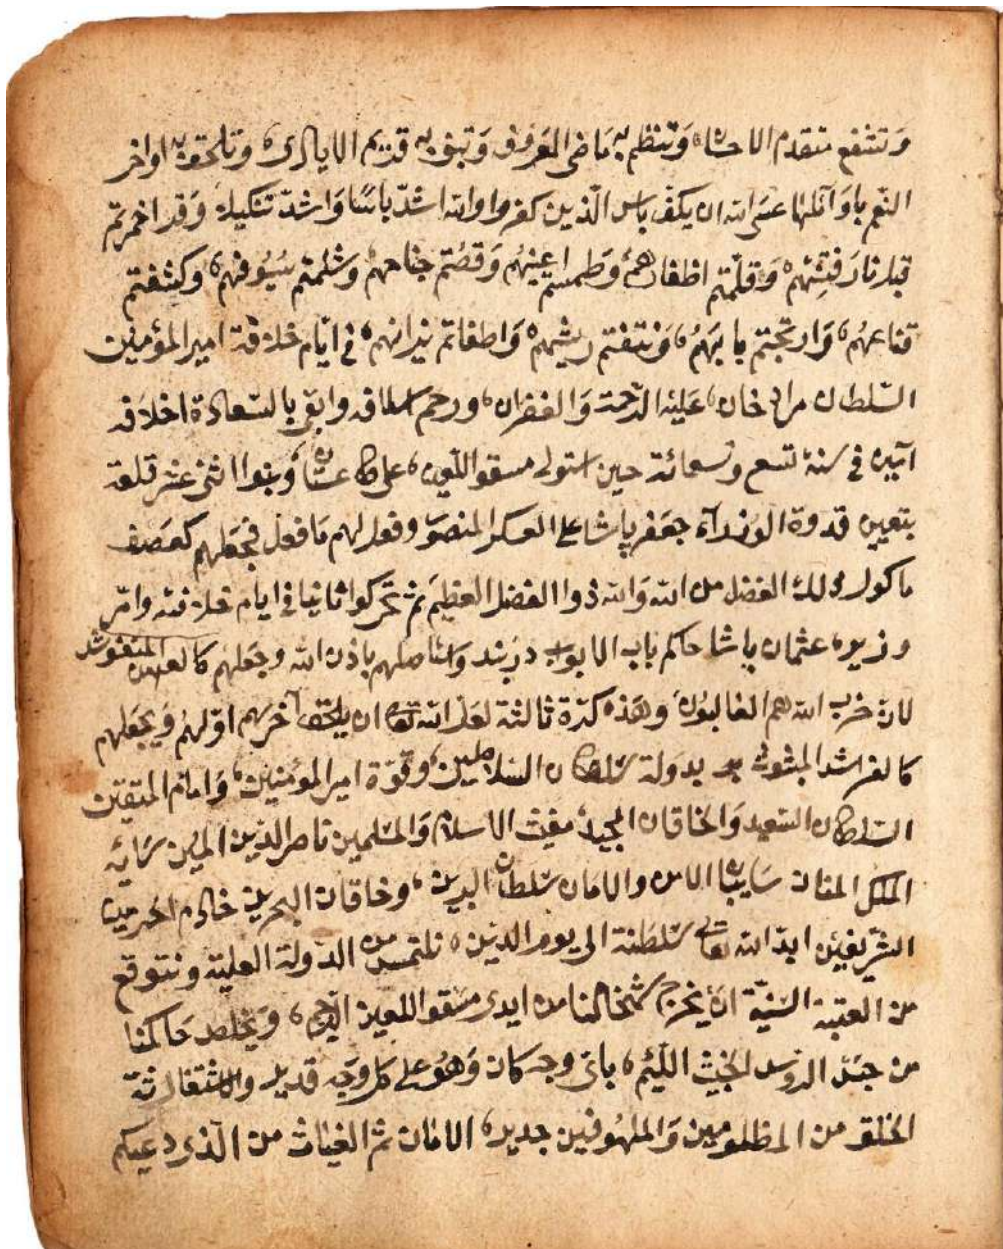 وَتشفع متقدم الاحسان وَتنظم به مَاضى المَعروف وَتبنى به قديم الايادى، وتلحق به اواخر
النّعم باوَائلها عسَى الله ان يكف باس الّذين كفروا والله اشدّ باسًا وَاشدّ تنكيلا وَقد اخمدتم
قبل نارَ فتنتهم، وَقلّمتم اظفارهم وَطمستم اعينهم وَقصصتم جناحهم وثلمتم سُيُوفهم، وكشفتم
قناعهُم، وَارتجتم بابَهُم، وَنتفتم ريشهم، وَاطفاتم نيرانهم، فى ايّام خلافة امير المؤمنين
السّلطان مراد خان، عَليه الرّحمة وَالغفران، ورحم اسلافه وابقى بالسّعادة اخلافه
آمين فى سنة تسع وتسعمائة حين استولى مسقو اللّعين، على طاغستان، وَبنوا اثنى عشر قلعة
بتعيين قدوة الوُزرآء جعفر پاشا على العسكر المنصور وفعل لهم مَا فعل فجعلهم كعَصف
ماكول ذلك الفضل من الله وَالله ذوا الفضل العظيم ثم تحركوا ثانيا فى ايام خلافته وامر
وزيره عثمان پاشا حاكم باب الابواب دربند وَاستاصلهم باذن الله وجعلهم كالعهن المنفوش
لان حزب الله هم الغالبون، وهذه كرّة ثالثة لعلّ الله تعالى ان يلحق آخرهم اوّلهم وَيجعلهم
كالفراش المبثوث بدولة سُلطان السّلاطين، وقوّة امير المؤمنين، وَامام المتقين
السّلطان السّعيد وَالخاقان المجيد مغيث الاسلام وَالمسلمين ناصر الدّين المبين سَايه
الملك المنان سَايبان الامن والامان سُلطان البرين، وخاقان البحرين خادم الحرمين
الشّريفين ابد الله تعالى سُلطنته الى يوم الدين، نلتمس من الدّولة العلية ونتوقع
من العتبة السّنيّة ان يخرج شمخالنا من ايدى مسقو اللّعين الرّجيم، وَيخلص حَاكمنا
من الروس الخبيث اللّئيم، باىّ وجه كان وَهُو على كل وَجه قدير واستغاثة
الخلق من المظلومين وَالملهوفين جدير، الامان ثم الغياث من الّذى دعيكم